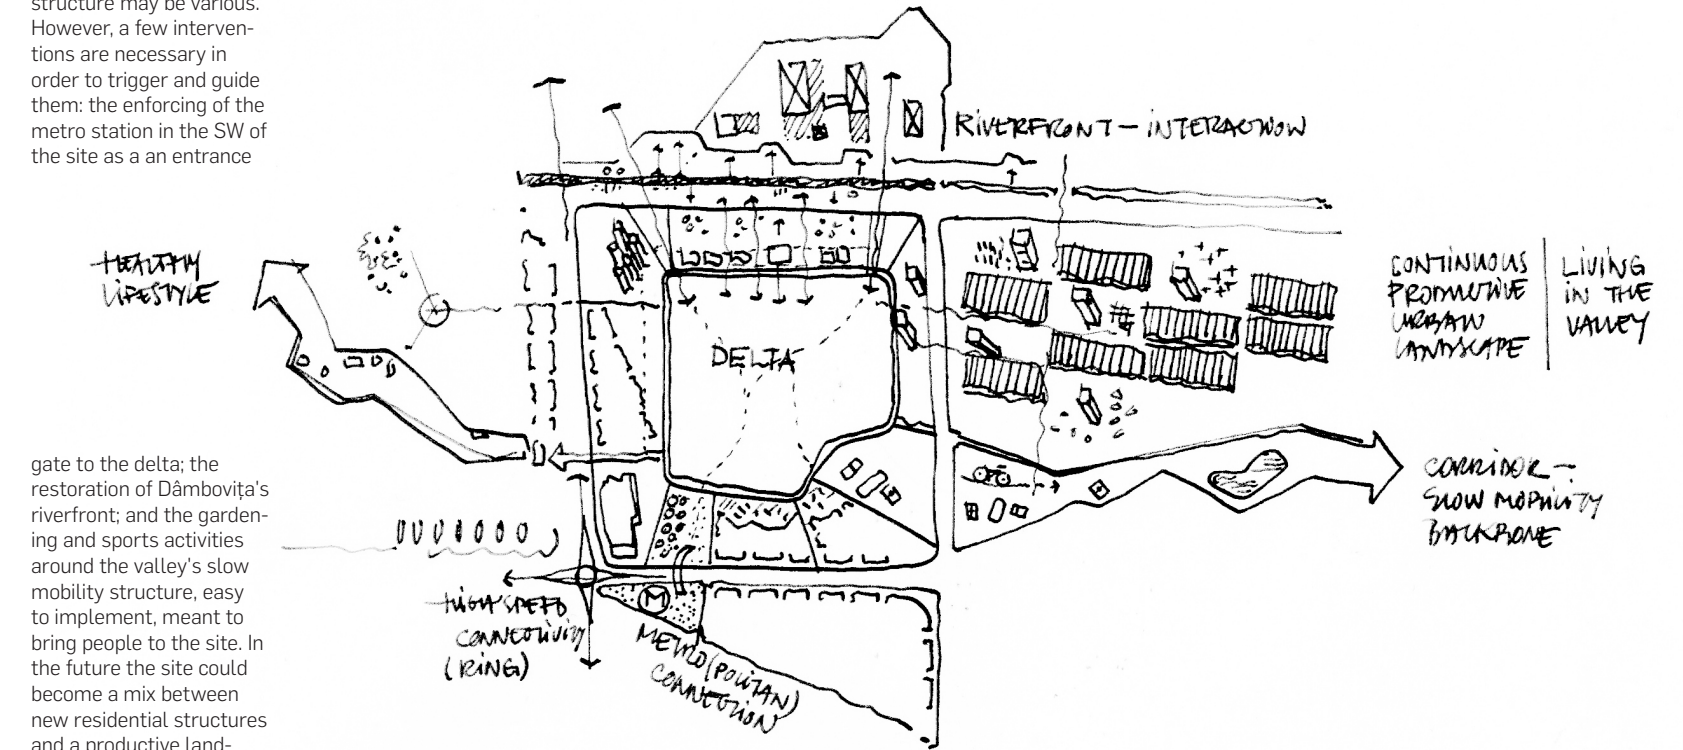 structure may be various.
However, a few interven-
tions are necessary in
order to trigger and guide
them: the enforcing of the
metro station in the SW of
the site as a an entrance
gate to the delta; the
restoration of Dâmbovița's
riverfront; and the garden-
ing and sports activities
around the valley's slow
mobility structure, easy
to implement, meant to
bring people to the site. In
the future the site could
become a mix between
new residential structures
and a productive land-
RIVERFRONT – INTERACTION
HEALTHY
LIFESTYLE
DELTA
CONTINUOUS
PRODUCTIVE
URBAN
LANDSCAPE
LIVING
IN THE
VALLEY
CORRIDOR –
SLOW MOBILITY
BACKBONE
HIGH SPEED
CONNECTIVITY
(RING)
M
METRO(POLITAN)
CONNECTION